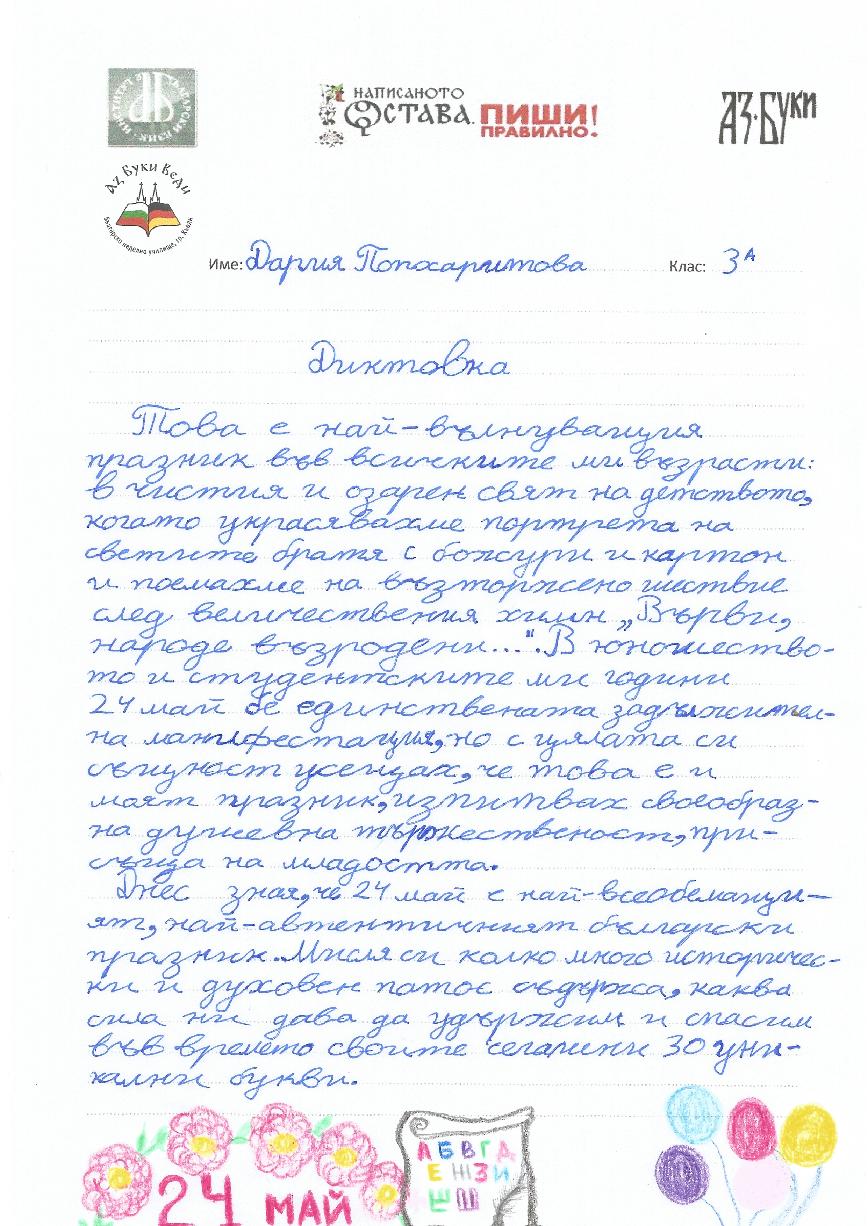 ИНСТИТУТ ЗА БЪЛГАРСКИ ЕЗИК
НАПИСАНОТО
ОСТАВА. ПИШИ
ПРАВИЛНО!
АЗ·БУКИ
Аз Буки Веди
Българско неделно училище, гр. Кьолн
Име: Дария Попхаритова Клас: 3А
Диктовка
Това е най-вълнуващия
празник във всичките ми възрасти:
в чистия и озарен свят на детството,
когато украсявахме портрета на
светите братя с божури и картон
и поемахме на възторжено шествие
след величествения химн „Върви,
народе възродени...". В юношество-
то и студентските ми години
24 май бе единствената задължител-
на манифестация, но с цялата си
същност усещах, че това е и
моят празник, изпитвах своеобраз-
на душевна тържественост, при-
съща на младостта.
Днес зная, че 24 май е най-всеобемащи-
ят, най-автентичният български
празник. Мисля си колко много историчес-
ки и духовен патос съдържа, каква
сила ни дава да удържим и спасим
във времето своите сегашни 30 уни-
кални букви.
24 МАЙ
АБВГД
ЕЖЗИ